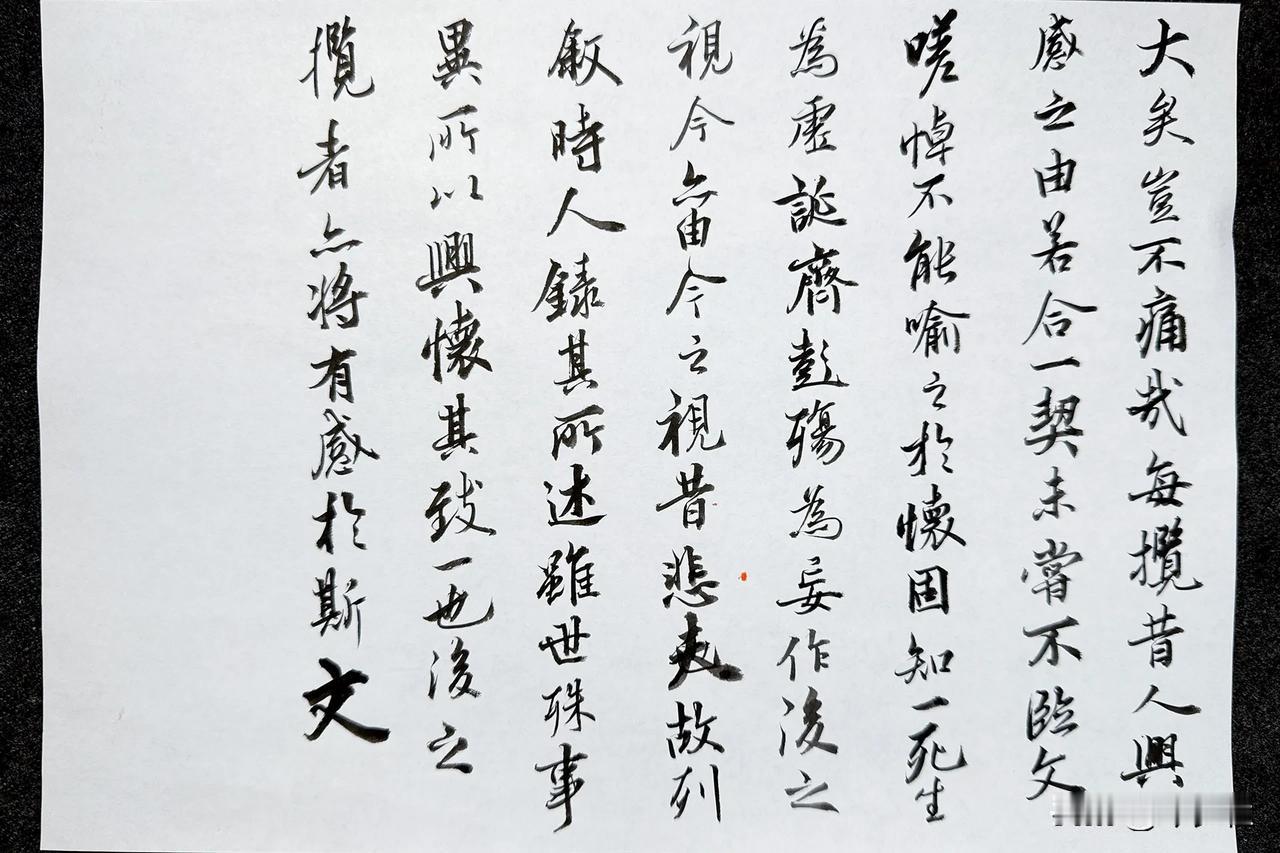 大矣豈不痛哉每攬昔人興
感之由若合一契未嘗不臨文
嗟悼不能喻之於懷固知一死生
為虛誕齊彭殤為妄作後之
視今亦由今之視昔悲夫故列
敘時人錄其所述雖世殊事
異所以興懷其致一也後之
攬者亦將有感於斯文